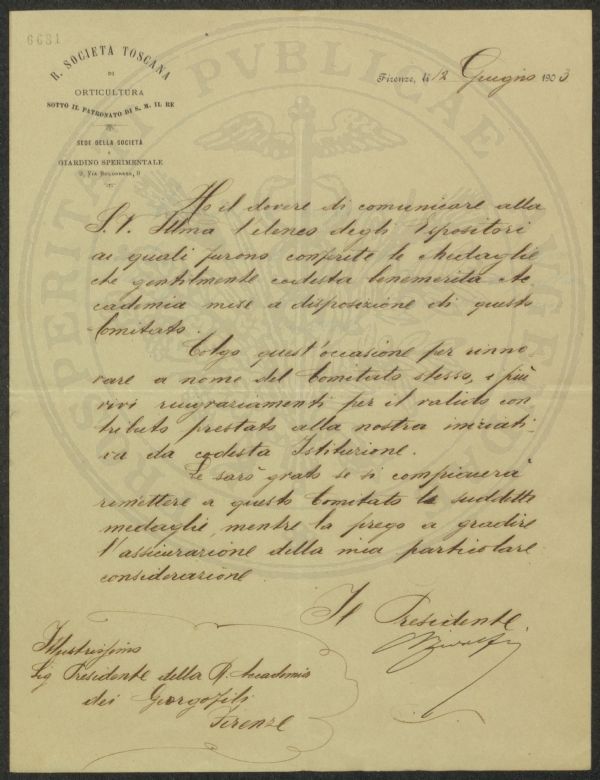 6631
R. SOCIETÀ TOSCANA
DI
ORTICULTURA
SOTTO IL PATRONATO DI S. M. IL RE
SEDE DELLA SOCIETÀ
E
GIARDINO SPERIMENTALE
9, Via Bolognese, 9
Firenze, li 12 Giugno 1903
Ho il dovere di comunicare alla
S. V. Illma l'elenco degli Espositori
ai quali furono conferite le Medaglie
che gentilmente codesta benemerita Ac
cademia mise a disposizione di questo
Comitato.
Colgo quest'occasione per rinno
vare a nome del Comitato stesso, i più
vivi ringraziamenti per il valido con
tributo prestato alla nostra iniziati
va da codesta Istituzione.
Le sarò grato se si compiacerà
remettere a questo Comitato le suddette
medaglie, mentre la prego a gradire
l'assicurazione della mia particolare
considerazione
Il Presidente
Illustrissimo
Sig Presidente della R. Accademia
dei Georgofili
Firenze